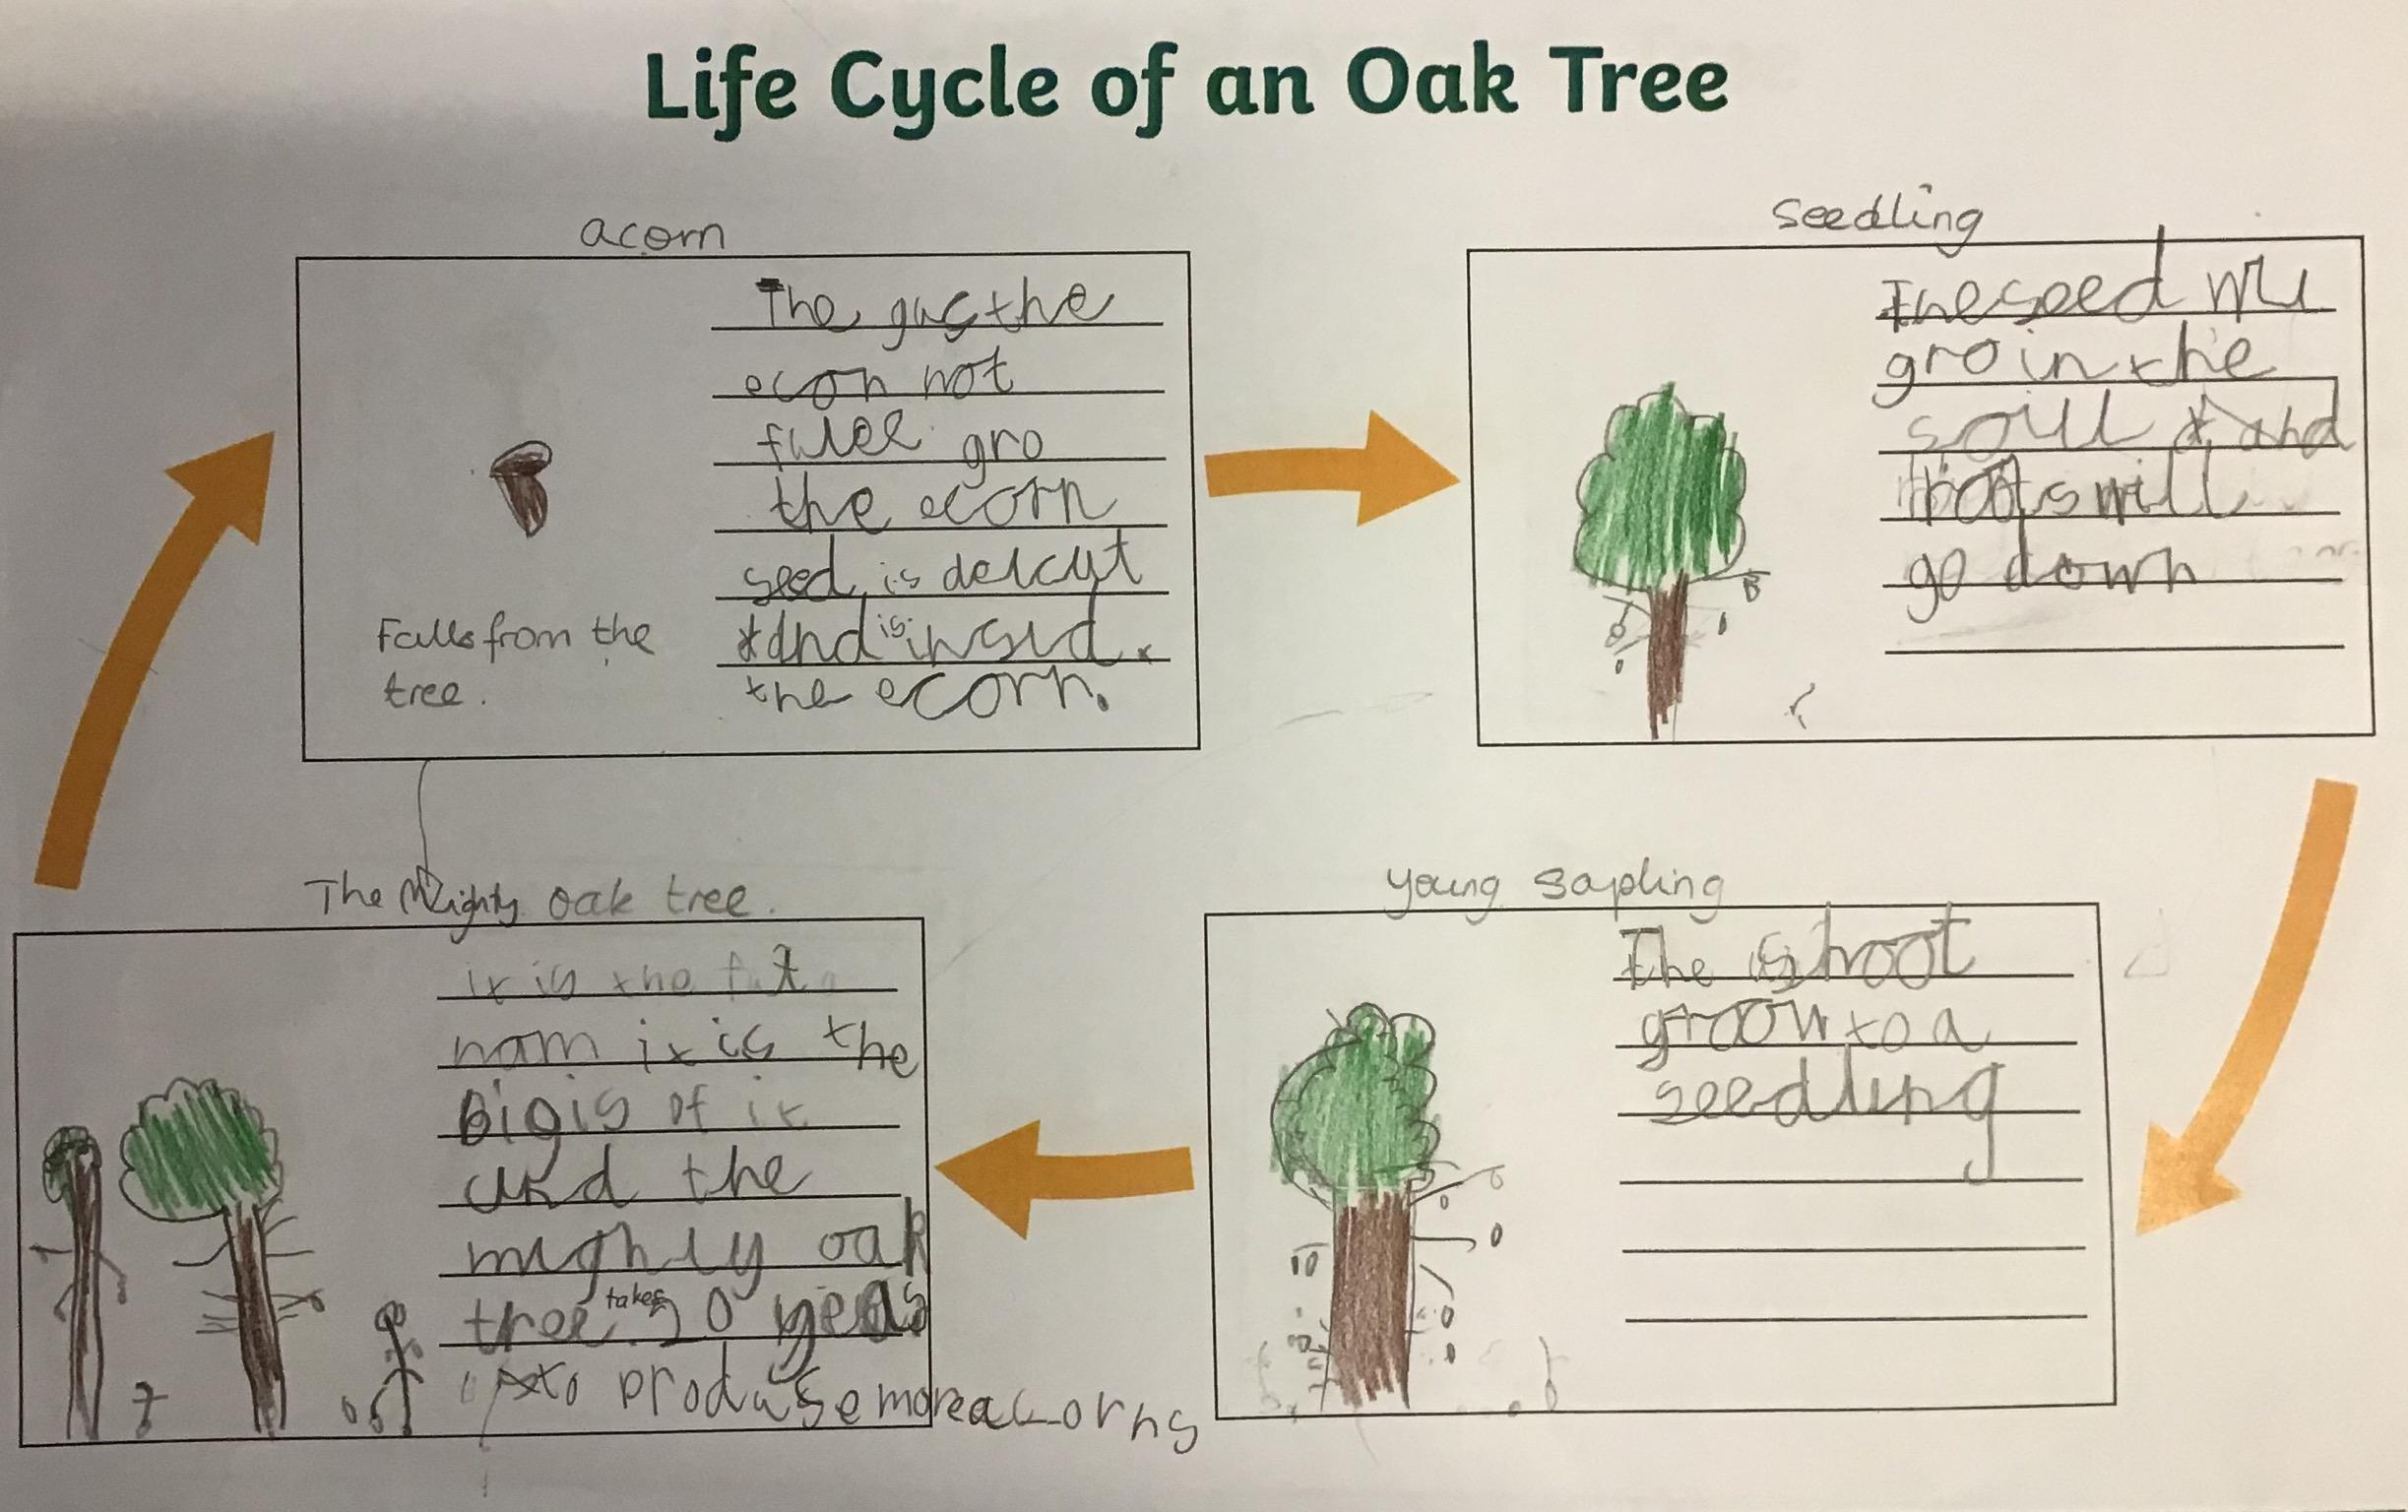 Life Cycle of an Oak Tree
acorn
The gus the
econ not
fulee gro
the ecorn
seed is delcut
and is insid
the ecorn.
Falls from the
tree.
seedling
The seed wil
gro in the
soill and
roots will
go down
young sapling
The shoot
groow to a
seedling
The Mighty oak tree.
it is the
nam it is the
Bigis of it
and the
mighly oak
tree takes 20 yeas
to produse more acorns